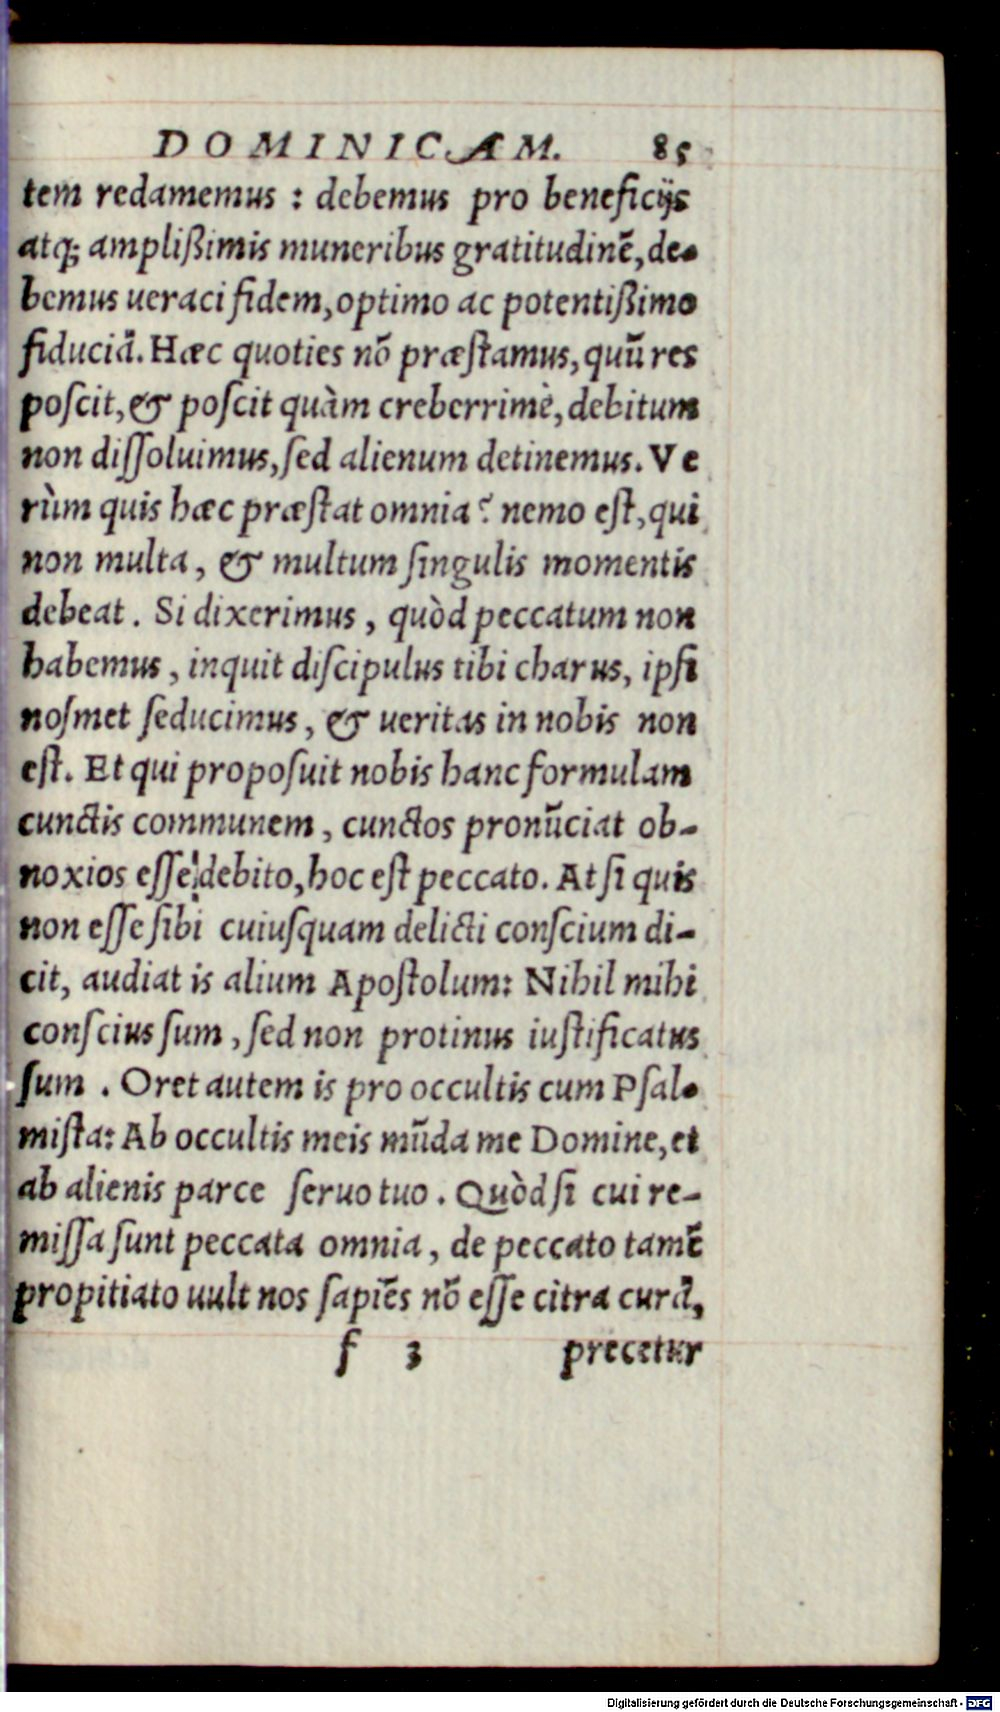 DOMINICAM. 85
tem redamemus : debemus pro beneficijs
atq; amplißimis muneribus gratitudinẽ, de-
bemus ueraci fidem, optimo ac potentißimo
fiduciã. Hæc quoties nõ præſtamus, quũ res
poſcit, & poſcit quàm creberrimè, debitum
non diſſoluimus, ſed alienum detinemus. Ve
rùm quis hæc præſtat omnia? nemo eſt, qui
non multa, & multum ſingulis momentis
debeat. Si dixerimus, quòd peccatum non
habemus, inquit diſcipulus tibi charus, ipſi
noſmet ſeducimus, & ueritas in nobis non
eſt. Et qui propoſuit nobis hanc formulam
cunctis communem, cunctos pronũciat ob-
noxios eſſe debito, hoc eſt peccato. At ſi quis
non eſſe ſibi cuiuſquam delicti conſcium di-
cit, audiat is alium Apoſtolum: Nihil mihi
conſcius ſum, ſed non protinus iuſtificatus
ſum. Oret autem is pro occultis cum Pſal-
miſta: Ab occultis meis mũda me Domine, et
ab alienis parce ſeruo tuo. Quòd ſi cui re-
miſſa ſunt peccata omnia, de peccato tamẽ
propitiato uult nos ſapiẽs nõ eſſe citra curã,
f 3 precetur
Digitalisierung gefördert durch die Deutsche Forschungsgemeinschaft - DFG